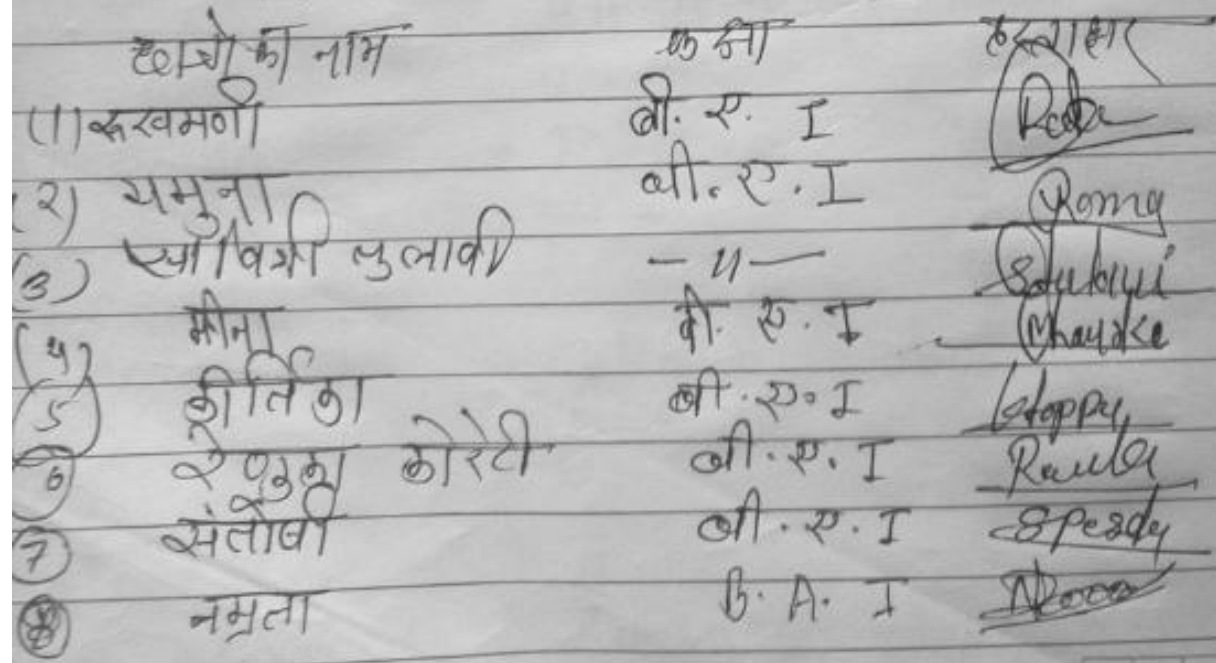 छात्रो का नाम कक्षा हस्ताक्षर
(1) रूखमणी बी. ए. I
(2) यमुना बी. ए. I Roma
(3) सावित्री तुलावी — 11 —
(4) मीना बी. ए. I
5 कीर्तिका बी. ए. I Happy
6 रेणुका कोरेटी बी. ए. I
7 संतोषी बी. ए. I
8 नम्रता B. A. I